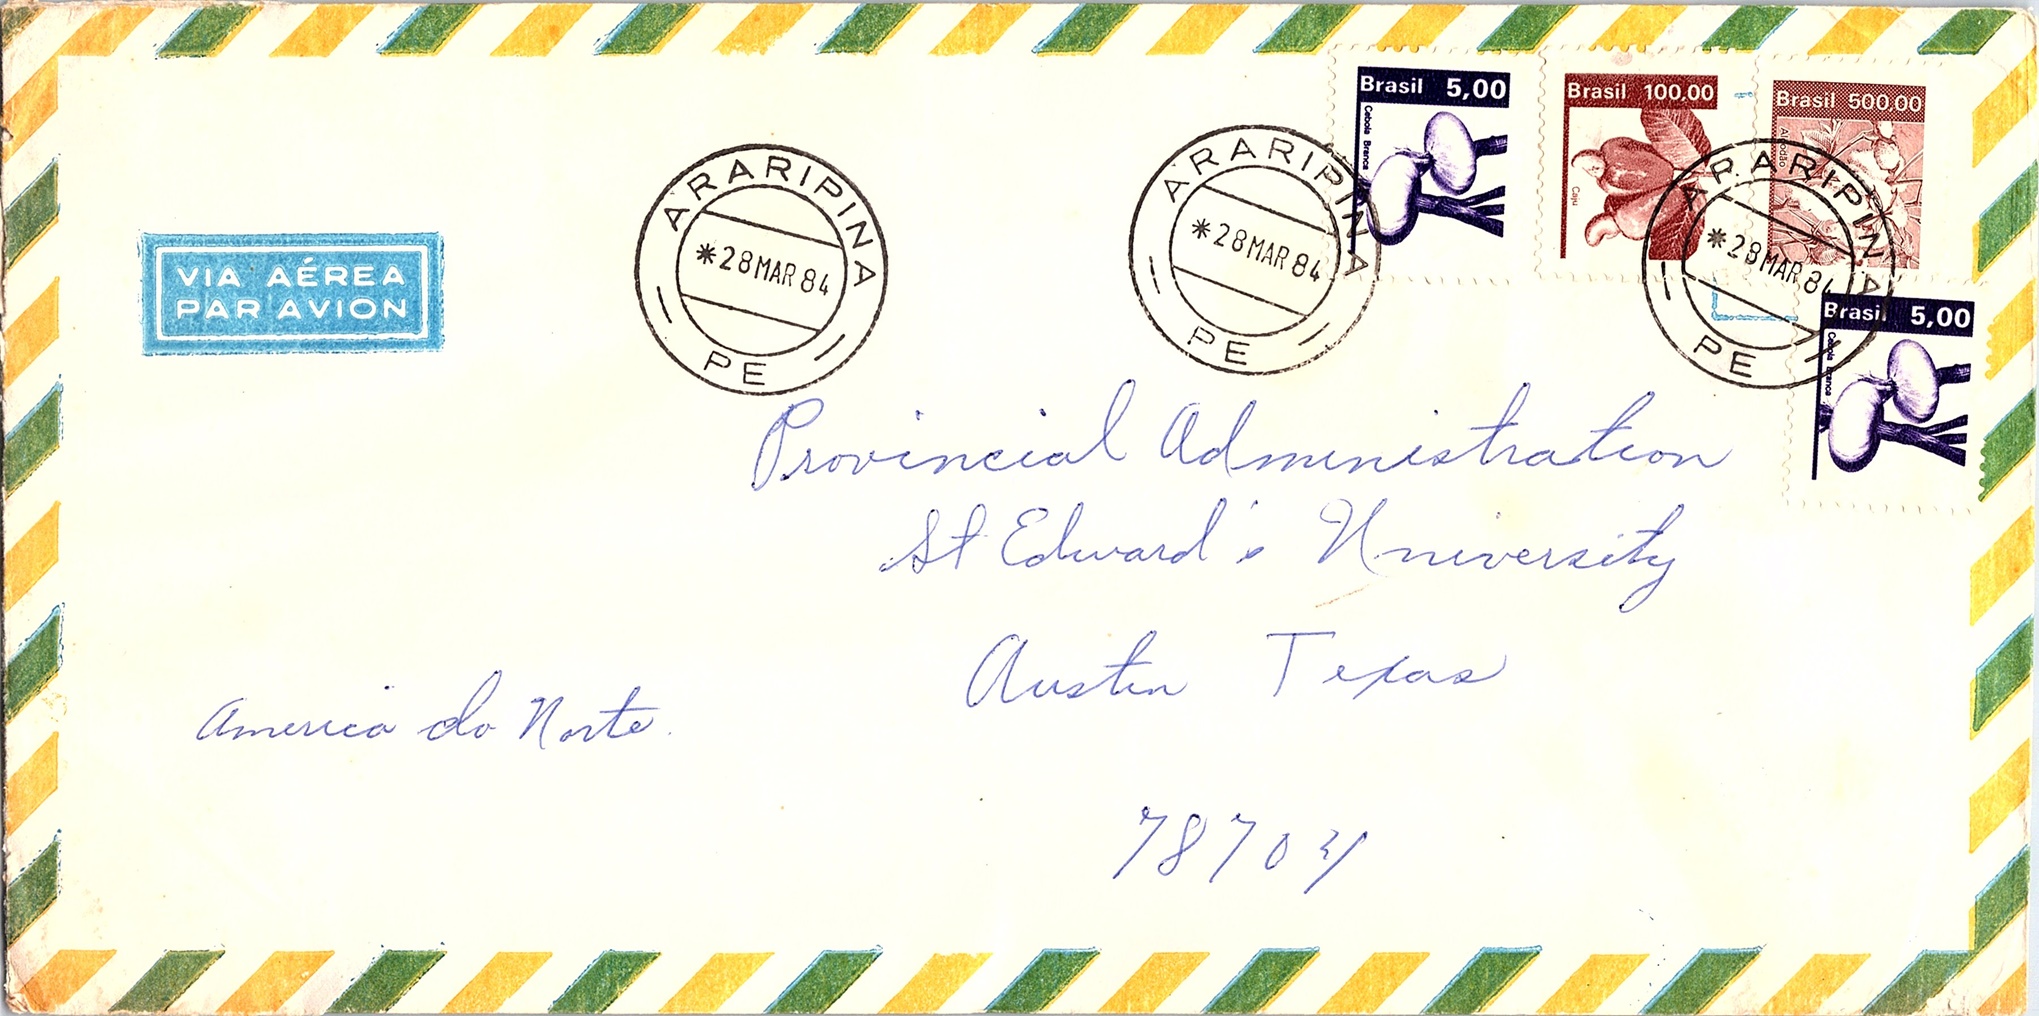 Brasil 5,00
Cebola Branca
Brasil 100.00
Caju
Brasil 500.00
Algodão
ARARIPINA
*28 MAR 84
PE
ARARIPINA
*28 MAR 84
PE
ARARIPINA
*28 MAR 84
PE
VIA AÉREA
PAR AVION
Brasil 5,00
Cebola Branca
Provincial Administration
St Edward's University
Austin Texas
America do Norte.
78704